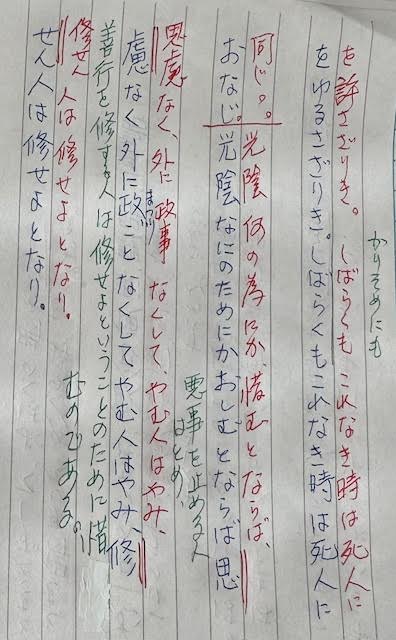 かりそめにも
を許さざりき。しばらくもこれなき時は死人に
をゆるさざりき。しばらくもこれなき時は死人に
同じ。。光陰何の為にか、惜むとならば、
おなじ。光陰なにのためにかおしむとならば思
悪事を止める人
はとめ、
思慮なく、外に政事なくして、やむ人はやみ、
慮なく外に政まつりことなくしてやむ人はやみ、修
善行を修す人は修せよということのために惜
むのである。
修せん人は修せよとなり。
せん人は修せよとなり。